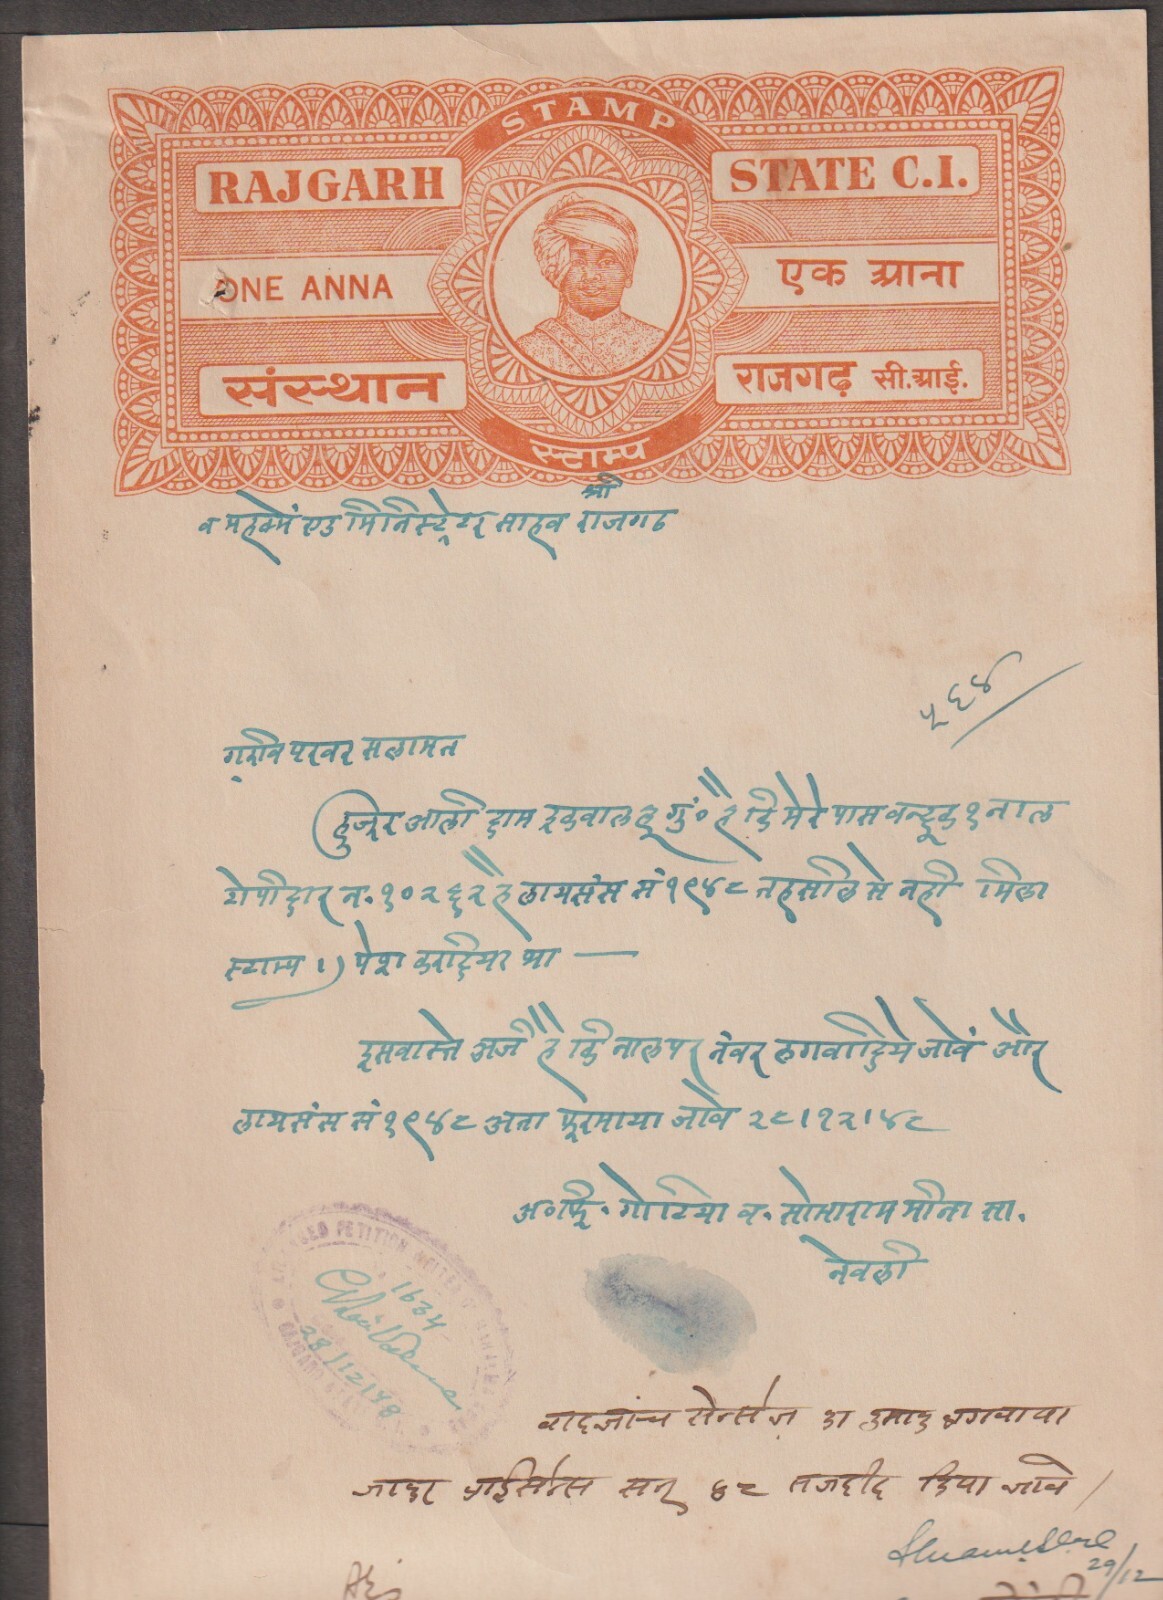 STAMP
RAJGARH STATE C.I.
ONE ANNA एक आना
संस्थान राजगढ़ सी.आई.
स्टाम्प
श्री
व महकमें एडमिनिस्ट्रेटर साहव राजगढ
५६४
ग़रीव परवर सलामत
हुजूर आली दाम इकवाल हू गु० है कि मेरे पास वन्दूक १ नाल
टोपीदार न. १०२६२ है लायसंस सं १९४८ तहसील से नही मिला
स्टाम्प १) पेश करदियर था —
इसवास्ते अर्ज है कि नाल पर नंवर लगवादिये जावें और
लायसंस सं १९४८ अता फ़रमाया जावे २८।१२।४८
अ० फि. गोटिया व. सोभाराम मीना सा.
नेवली
PETITION WRITER
1634
28/12/48
वाद जांच सेन्सेज़ का लगवाया
जाकर लाईसेन्स सन् ४८ तजदीद दिया जावे
29/12